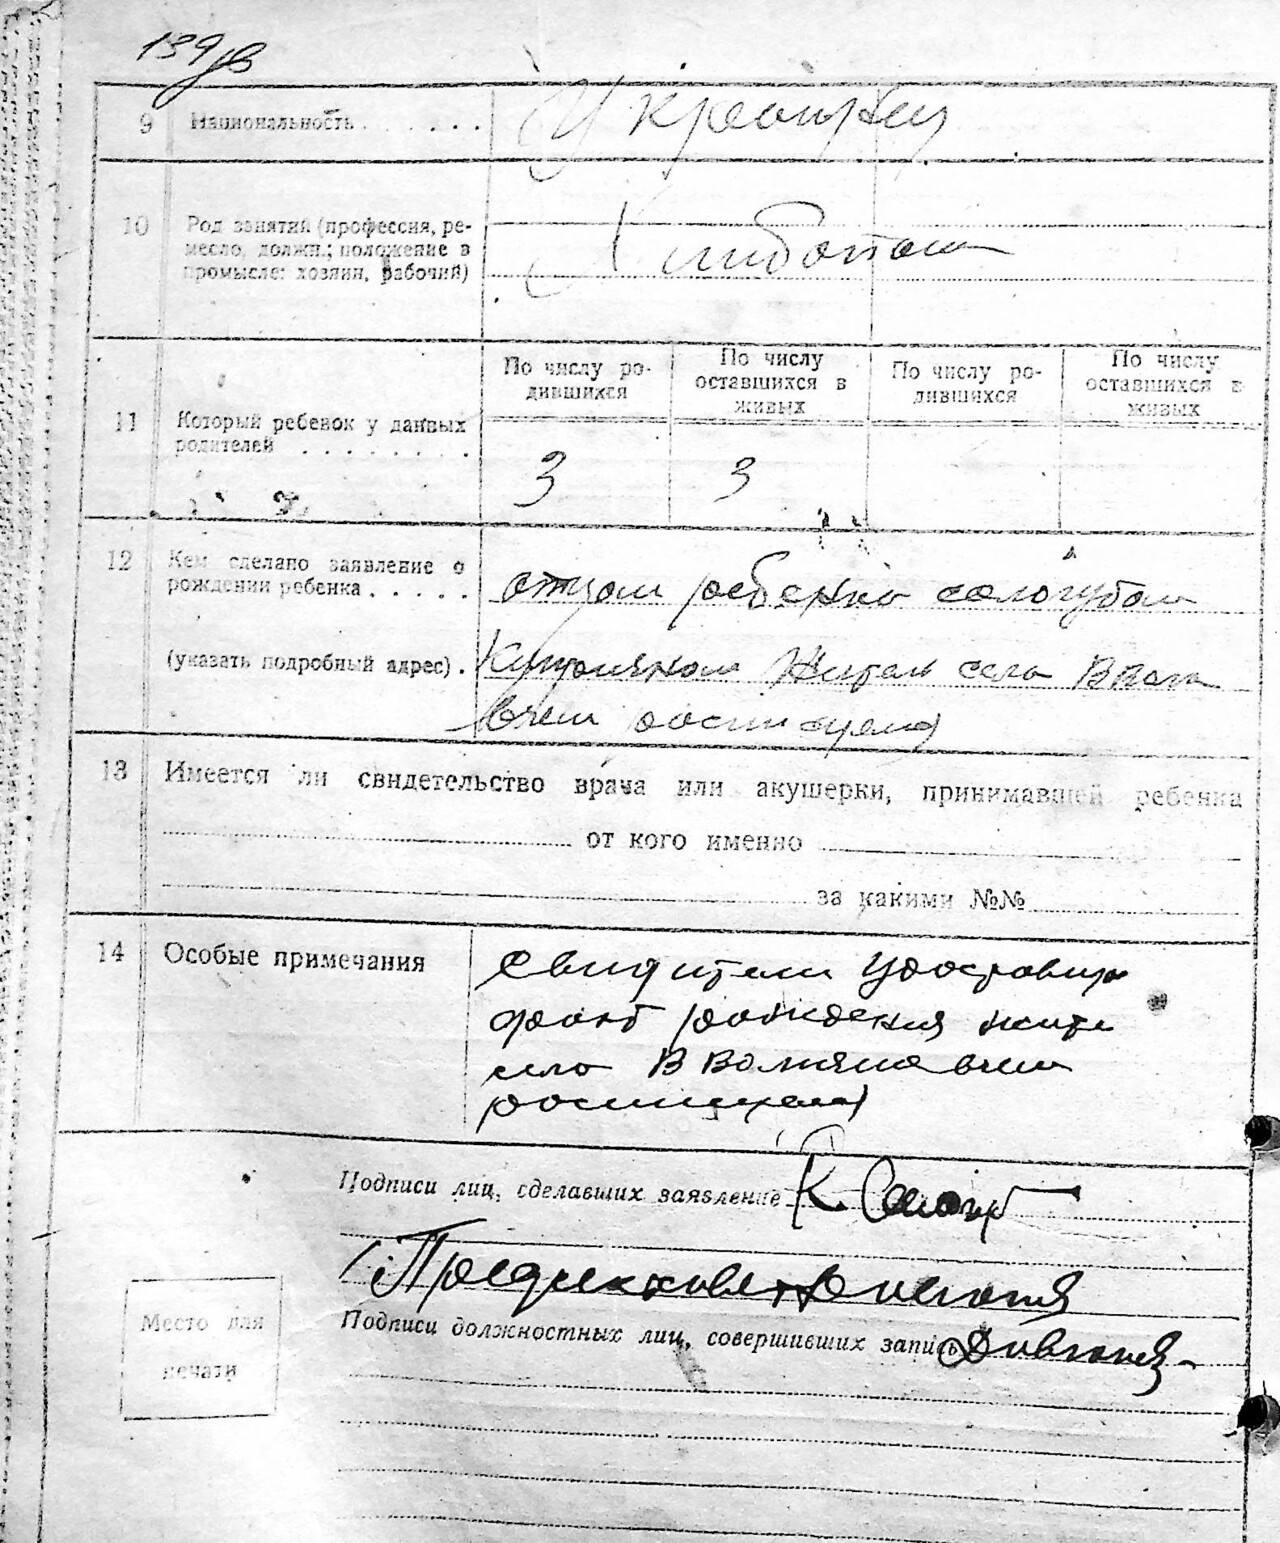 139
9 Национальность
Украинцы
10 Род занятий (профессия, ре-
месло, должн.; положение в
промысле: хозяин, рабочий)
Хлибопаш
11 Который ребенок у данных
родителей
По числу ро-
дившихся
По числу
оставшихся в
живых
По числу ро-
дившихся
По числу
оставшихся в
живых
3 3
12 Кем сделано заявление о
рождении ребенка
отцом ребенка сологубом
(указать подробный адрес).
Куприяном Жител села
в чем росписуемся
13 Имеется ли свидетельство врача или акушерки, принимавшей ребенка
от кого именно
за какими №№
14 Особые примечания
свидители
факт рождения жите
село В в чем
росписуемся
Подписи лиц, сделавших заявление К. Сологуб
Подписи должностных лиц, совершивших запись
Место для
печати